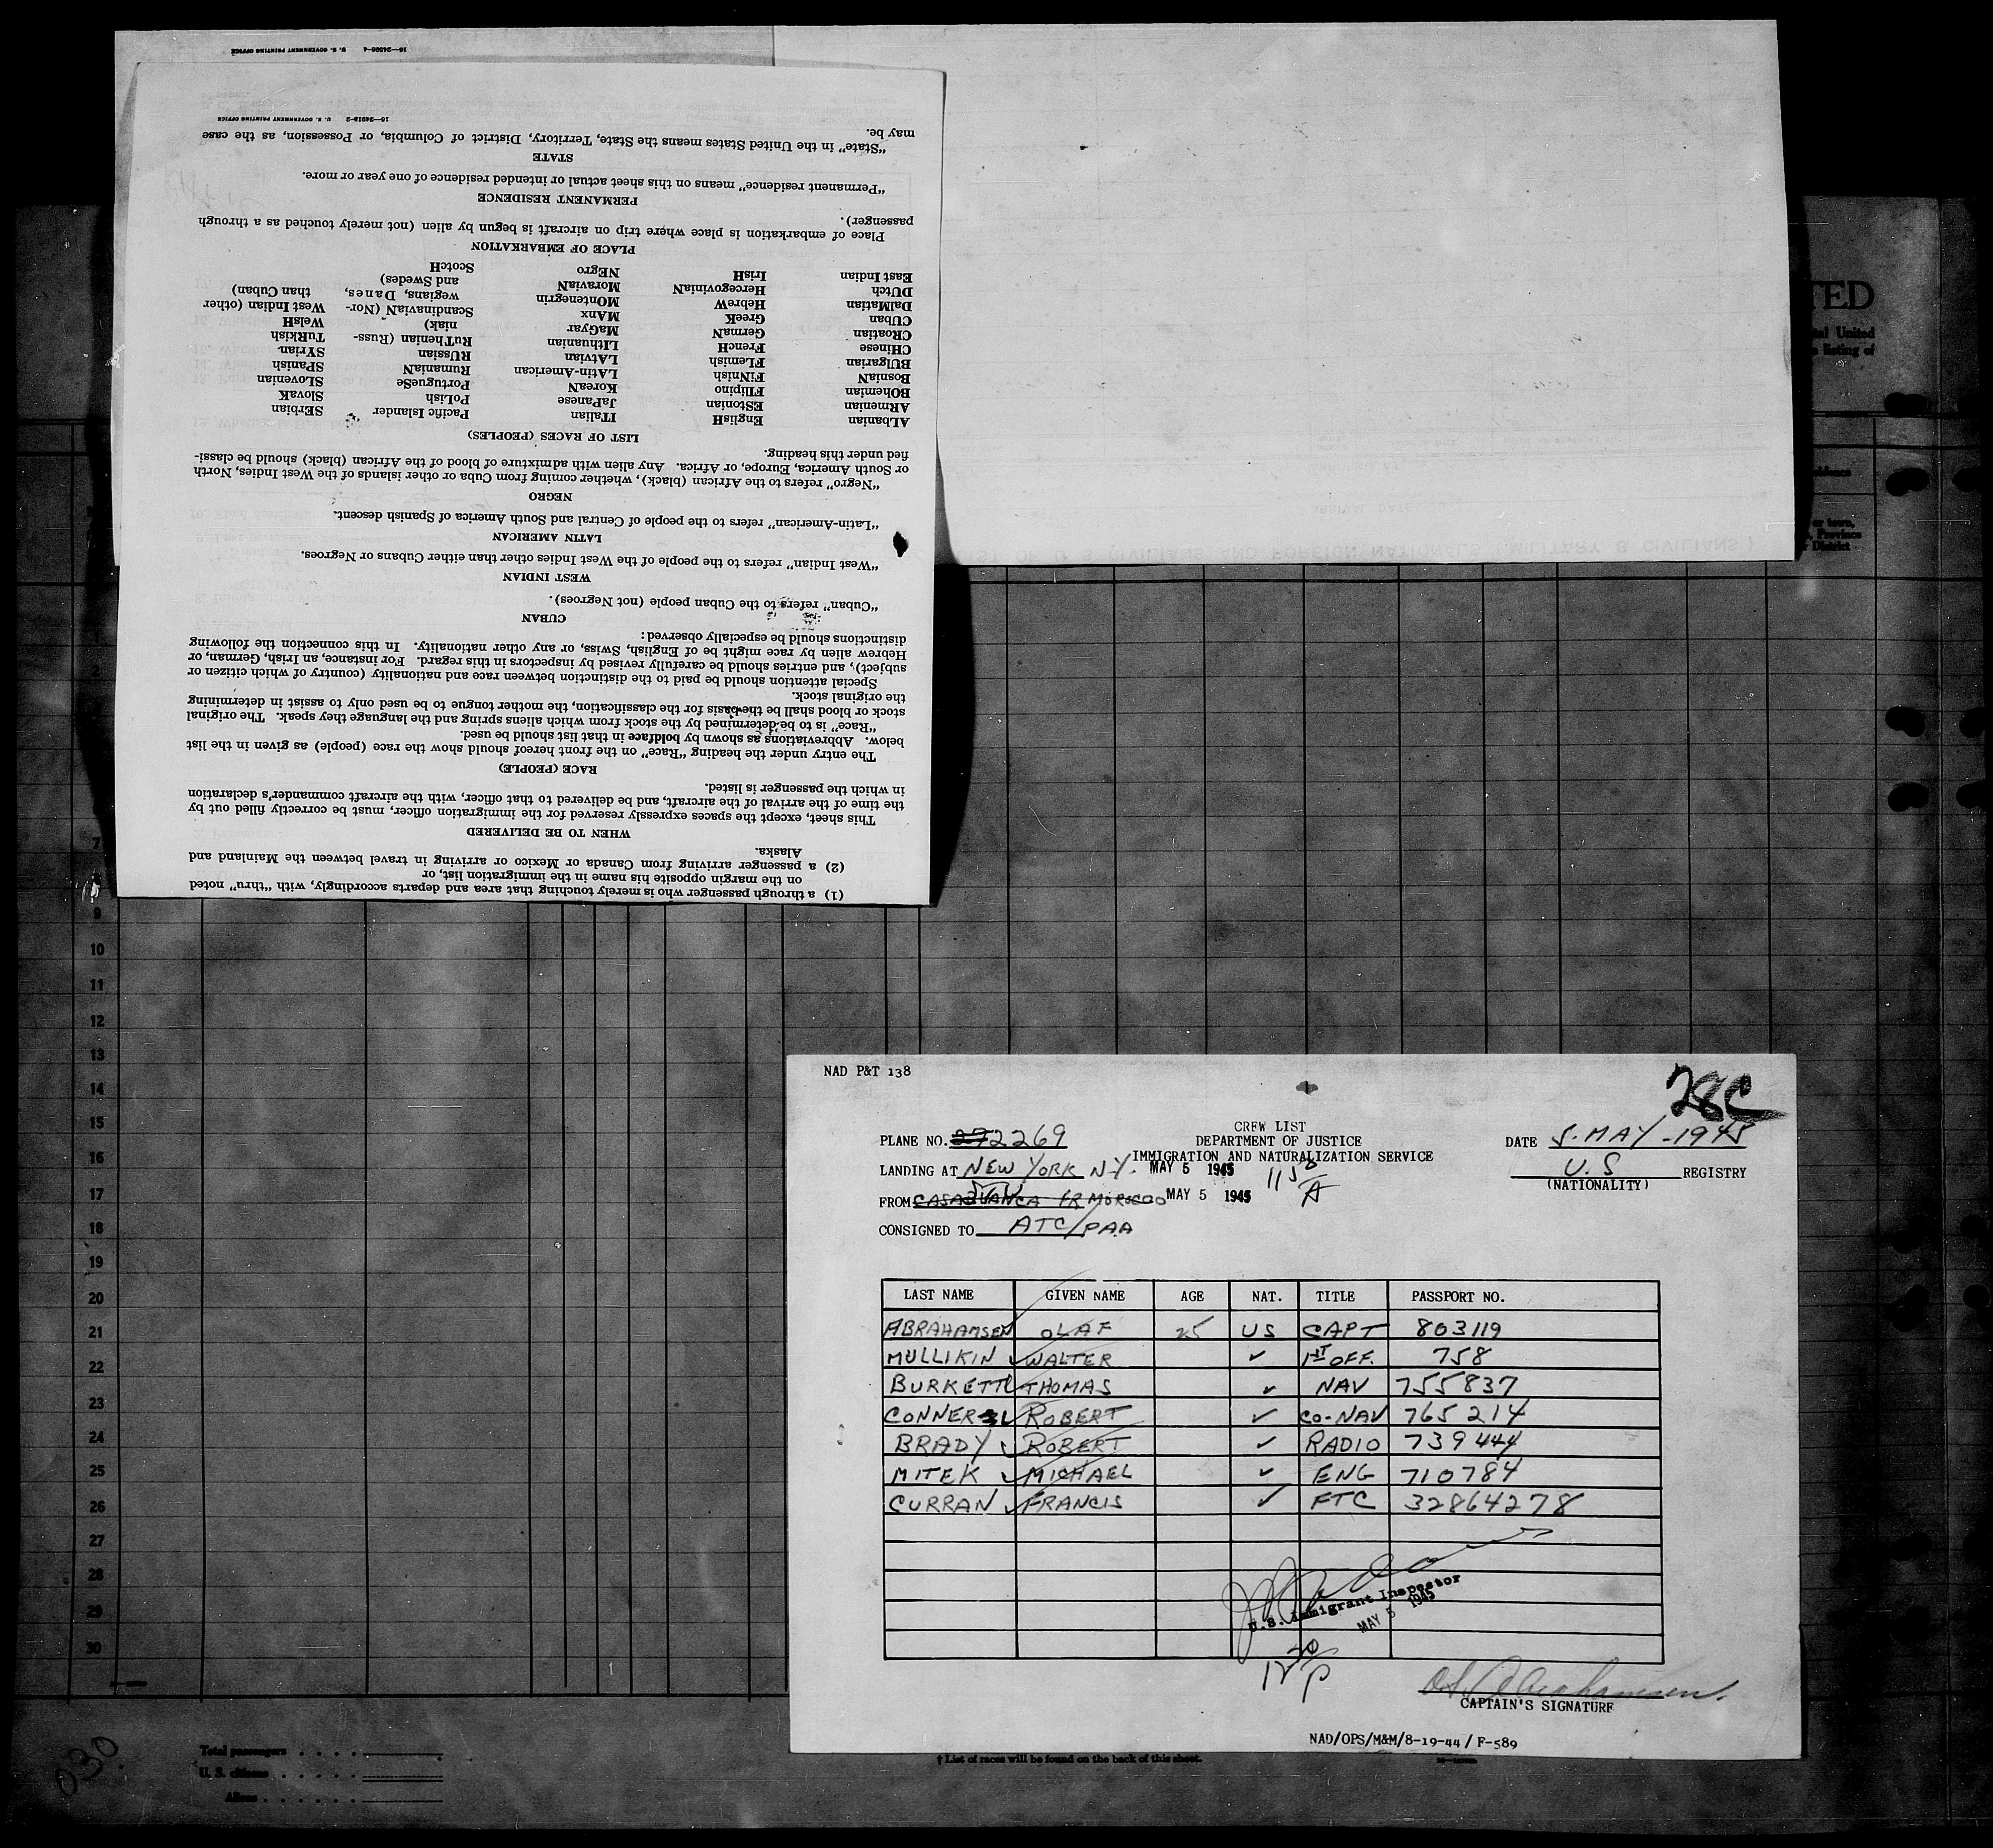 16—24598-4 U. S. GOVERNMENT PRINTING OFFICE
(1) a through passenger who is merely touching that area and departs accordingly, with "thru" noted
on the margin opposite his name in the immigration list, or
(2) a passenger arriving from Canada or Mexico or arriving in travel between the Mainland and
Alaska.
WHEN TO BE DELIVERED
This sheet, except the spaces expressly reserved for the immigration officer, must be correctly filled out by
the time of the arrival of the aircraft, and be delivered to that officer, with the aircraft commander's declaration
in which the passenger is listed.
RACE (PEOPLE)
The entry under the heading "Race" on the front hereof should show the race (people) as given in the list
below. Abbreviations as shown by boldface in that list should be used.
"Race" is to be determined by the stock from which aliens spring and the language they speak. The original
stock or blood shall be the basis for the classification, the mother tongue to be used only to assist in determining
the original stock.
Special attention should be paid to the distinction between race and nationality (country of which citizen or
subject), and entries should be carefully revised by inspectors in this regard. For instance, an Irish, German, or
Hebrew alien by race might be of English, Swiss, or any other nationality. In this connection the following
distinctions should be especially observed:
CUBAN
"Cuban" refers to the Cuban people (not Negroes).
WEST INDIAN
"West Indian" refers to the people of the West Indies other than either Cubans or Negroes.
LATIN AMERICAN
"Latin-American" refers to the people of Central and South America of Spanish descent.
NEGRO
"Negro" refers to the African (black), whether coming from Cuba or other islands of the West Indies, North
or South America, Europe, or Africa. Any alien with admixture of blood of the African (black) should be classi-
fied under this heading.
LIST OF RACES (PEOPLES)
ALbanian EnglisH ITalian Pacific Islander SErbian
ARmenian EStonian JaPanese PoLish SlovaK
BOhemian FIlipino KoreaN PortugueSe SLovenian
BosniaN FiNNish LAtin-American RumaniaN SPanish
BUlgarian FLemish LAtvian RUssian SYrian
CHinese FrencH LIthuanian RuThenian (Russ- TuRkish
CRoatian GermaN MaGyar niak) WelsH
CUban GreeK MAnx ScandinaviaN (Nor- West Indian (other
DalMatian HebreW MOntenegrin wegians, Danes, than Cuban)
DUtch HercegoviniaN MoraviaN and Swedes)
East Indian IrisH NEgro ScotcH
PLACE OF EMBARKATION
Place of embarkation is place where trip on aircraft is begun by alien (not merely touched as a through
passenger).
PERMANENT RESIDENCE
"Permanent residence" means on this sheet actual or intended residence of one year or more.
STATE
"State" in the United States means the State, Territory, District of Columbia, or Possession, as the case
may be.
16—24915-2 U. S. GOVERNMENT PRINTING OFFICE
TED
United
listing of
or town,
Province
District
7
9
10
11
12
13
14
15
16
17
18
19
20
21
22
23
24
25
26
27
28
29
30
NAD P&T 138
28C
CREW LIST
PLANE NO. 272269 DEPARTMENT OF JUSTICE DATE 5-MAY-1945
IMMIGRATION AND NATURALIZATION SERVICE
LANDING AT NEW YORK N.Y. MAY 5 1945 U.S REGISTRY
(NATIONALITY)
FROM CASABLANCA FR MOROCCO MAY 5 1945
CONSIGNED TO ATC/PAA
LAST NAME GIVEN NAME AGE NAT. TITLE PASSPORT NO.
ABRAHAMSEN OLAF 25 US CAPT 803119
MULLIKIN WALTER ✓ 1ST OFF. 758
BURKETT THOMAS ✓ NAV 755837
CONNER ROBERT ✓ CO-NAV 765214
BRADY ROBERT ✓ RADIO 739444
MITEK MICHAEL ✓ ENG 710784
CURRAN FRANCIS ✓ FTC 32864278
U.S. Immigrant Inspector
MAY 5 1945
CAPTAIN'S SIGNATURE
NAD/OPS/M&M/8-19-44/F-589
030.
Total passengers
U. S. citizens
Aliens
† List of races will be found on the back of this sheet.